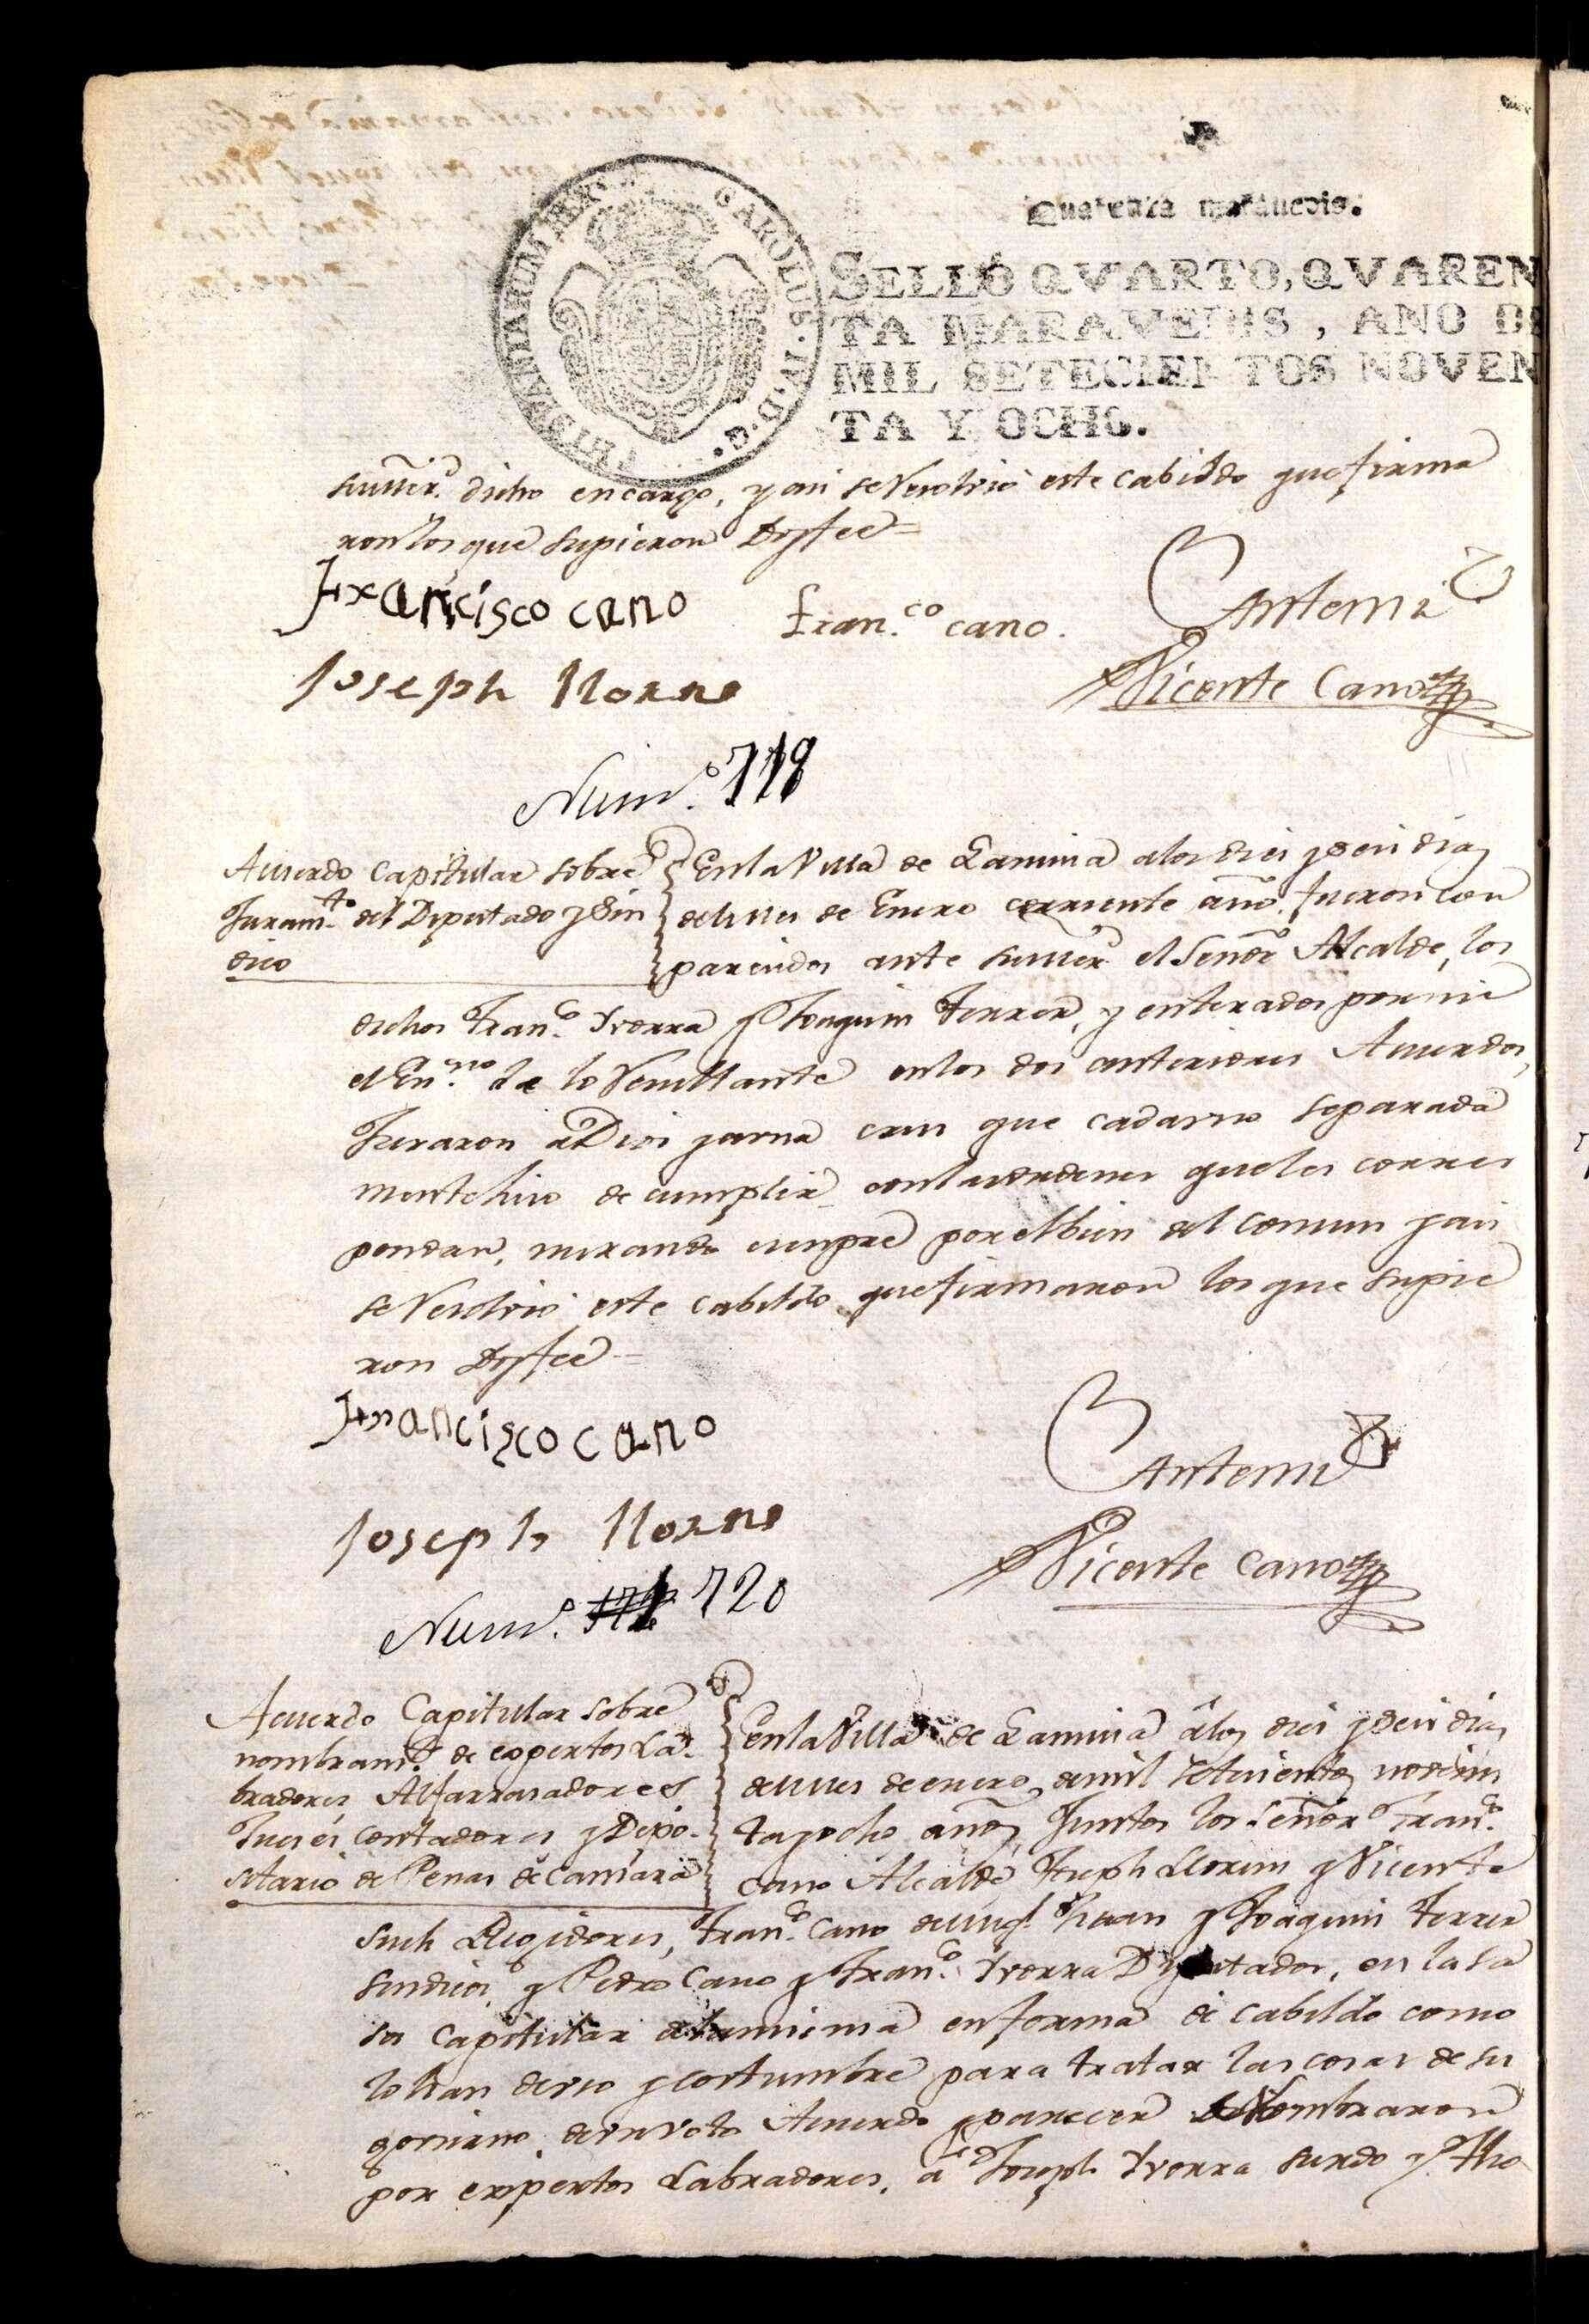 Quarenta maravedis.
CAROLUS. IV. D. G. HISPANIARUM REX
SELLO QVARTO, QVAREN
TA MARAVEDIS, AÑO DE
MIL SETECIENTOS NOVEN
TA Y OCHO.
sumer.d dicho encargo, y asi se resolvió este cabildo que firma
ron los que supieron Doyfee=
Francisco cano
fran.co cano.
Antemi
Joseph llorens
Vicente Cano
Num.o 719
Acuerdo Capitular sobre
Juram.to del Diputado y Sin
dico
En la Villa de Lamina a los diez y seis dias
del mes de Enero corriente año, fueron com
parecidos ante sumer.d el Señor Alcalde, los
dichos Fran.co Yvorra y Joaquin Ferrer, y enterados por mi
el Esn.no de lo resultante en los dos anteriores Acuerdos,
Juraron a Dios y a una cruz que cada uno separada
mente hizo de cumplir con las ordenes que les corres
pondan, mirando siempre por el bien del comun y asi
se resolvió este cabildo que firmaron los que supie
ron Doyfee=
Francisco cano
Antemi
Joseph llorens
Vicente Cano
Num.o 720
Acuerdo Capitular sobre
nombram.to de expertos La-
bradores Alfarrasadores
Jueces Contadores y Depo-
sitario de Penas de Camara
En la Villa de Lamina á los diez y seis dias
del mes de enero de mil setecientos noven
ta y ocho años, Juntos los Señor Fran.co
cano Alcalde, Joseph Llorens y Vicente
Such Regidores, Fran.co Cano de Juan y Joaquin Ferrer
Sindicos, y Pedro Cano y Fran.co Yvorra Diputados, en la Sa
la Capitular de la misma en forma de cabildo como
lo han de uso y costumbre para tratar las cosas de su
govierno, de un voto Acuerdo y parecer Nombraron
por expertos Labradores, a Joseph Yvorra Surdo y Tho